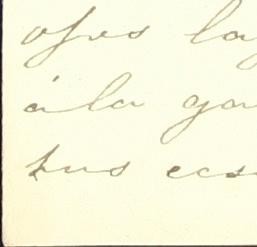 ofres la
á la ga
sus ecs